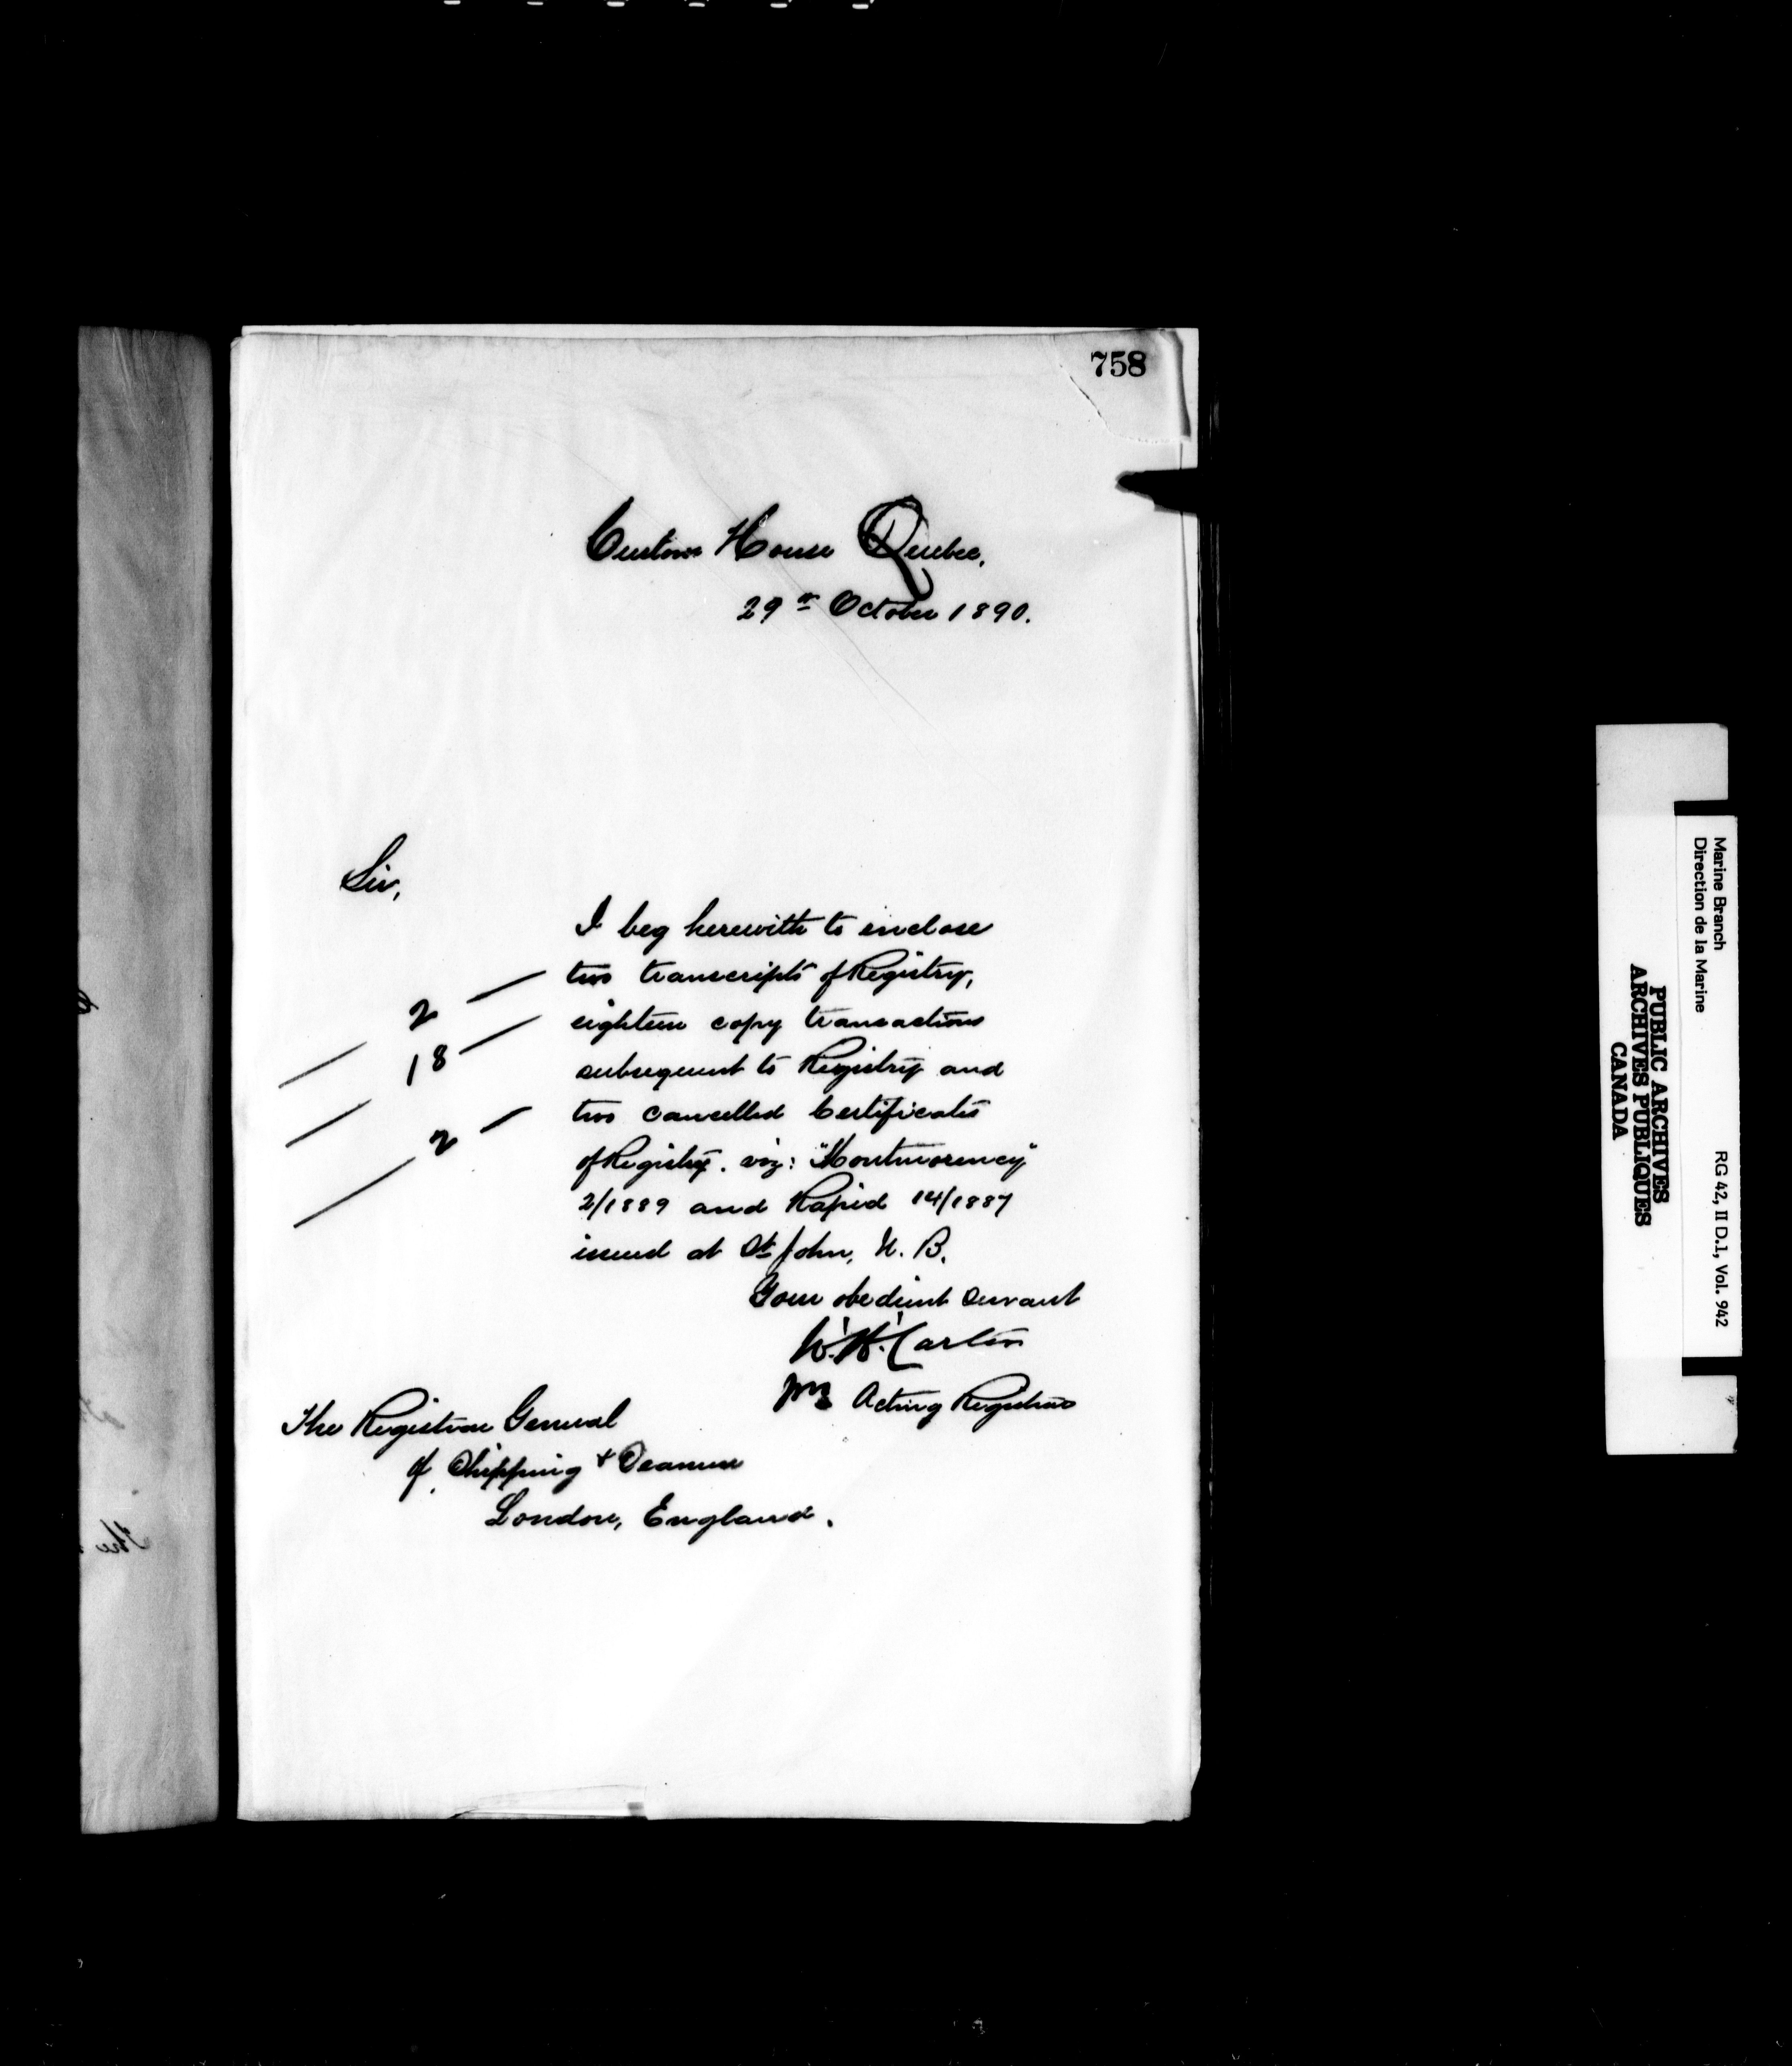 758
Custom House Quebec,
29th October 1890.
Sir,
I beg herewith to enclose
2 — two transcripts of Registry,
18 — eighteen copy transactions
subsequent to Registry and
2 — two cancelled Certificates
of Registry. viz: "Montmorency"
2/1889 and Rapid 14/1887
issued at St John, N. B.
Your obedient Servant
W. H. Carter
Acting Registrar
The Registrar General
of Shipping & Seamen
London, England.
The
Marine Branch
Direction de la Marine
RG 42, II D.1, Vol. 942
PUBLIC ARCHIVES
ARCHIVES PUBLIQUES
CANADA